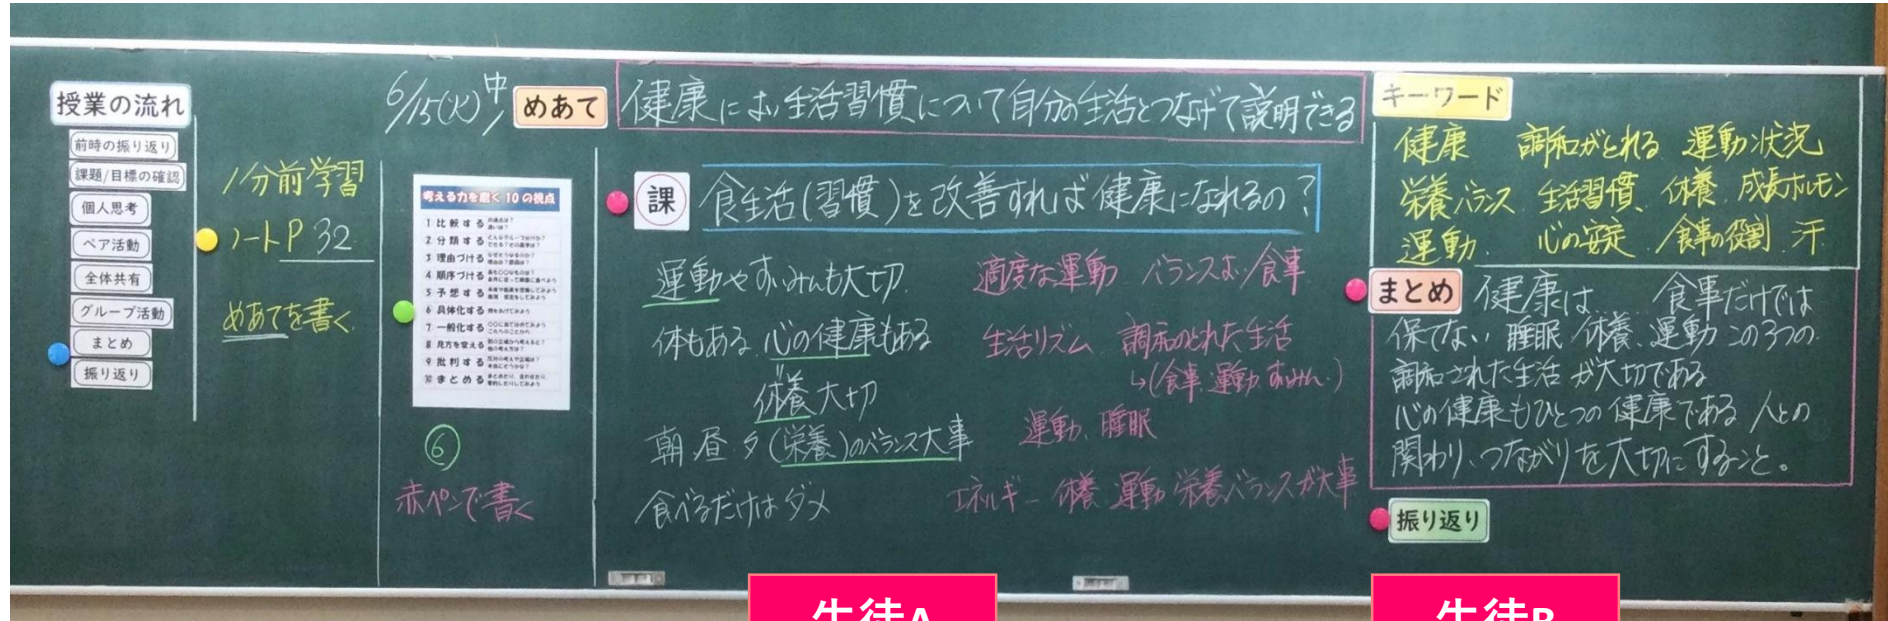 授業の流れ
前時の振り返り
課題/目標の確認
個人思考
ペア活動
全体共有
グループ活動
まとめ
振り返り
1分前学習
ノートP32
めあてを書く
6/15(火)中
めあて 健康によい生活習慣について自分の生活とつなげて説明できる
考える力を磨く10の視点
1 比較する
2 分類する
3 理由づける
4 順序づける
5 予想する
6 具体化する
7 一般化する
8 見方を変える
9 批判する
10 まとめる
⑥
赤ペンで書く
課 食生活(習慣)を改善すれば健康になれるの?
運動やすいみんも大切
体もある 心の健康もある
休養大切
朝昼夕(栄養)のバランス大事
食べるだけはダメ
適度な運動 バランスよい食事
生活リズム 調和のとれた生活
↳(食事.運動.すいみん.)
運動、睡眠
エネルギー 休養 運動 栄養バランスが大事
キーワード
健康 調和がとれる 運動状況
栄養バランス 生活習慣、休養 成長ホルモン
運動 心の安定 食事の役割 汗
まとめ 健康は 食事だけでは
保てない 睡眠 休養、運動 この3つの
調和された生活 が大切である
心の健康もひとつの健康である 人との
関わり、つながりを大切にすること。
振り返り
生徒A
生徒B